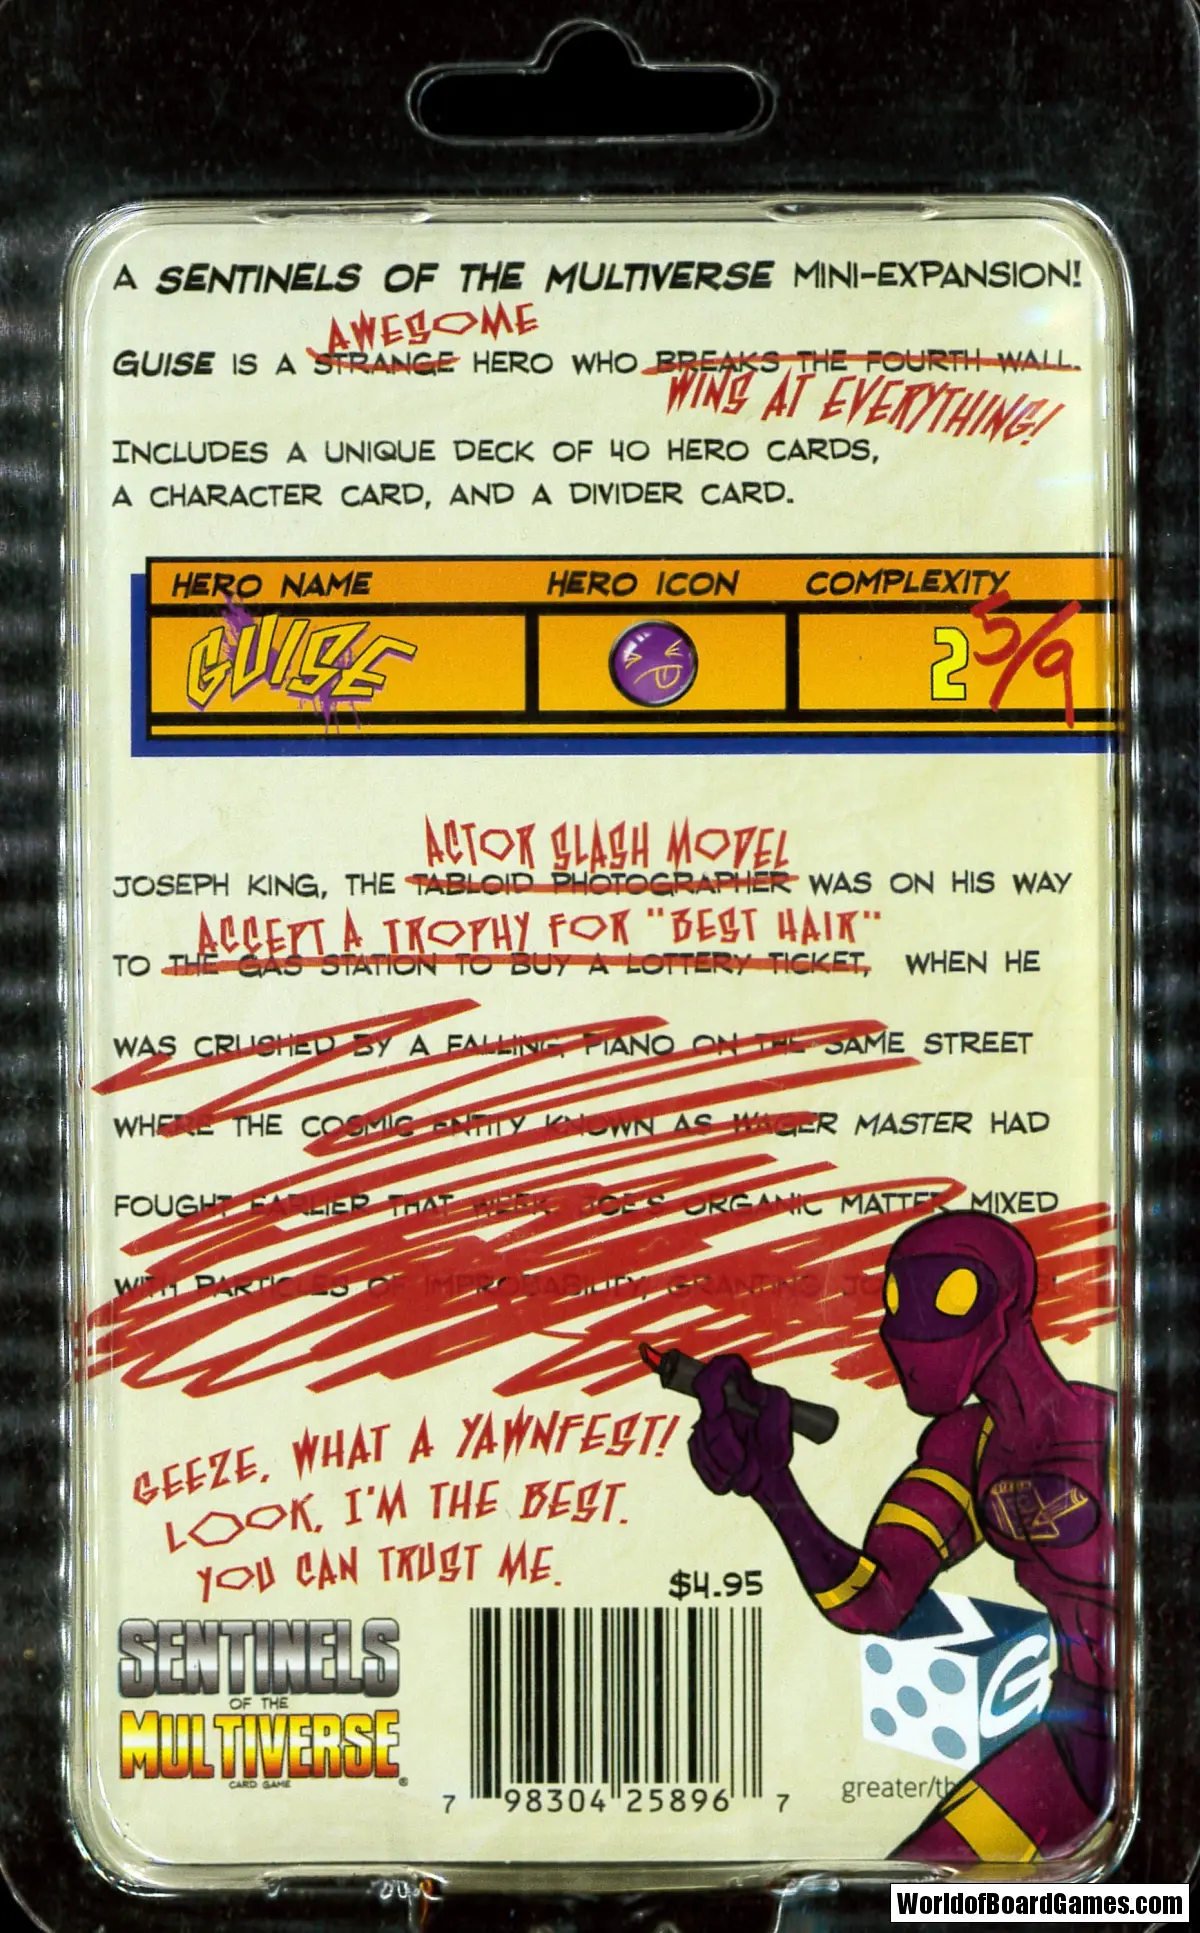 A SENTINELS OF THE MULTIVERSE MINI-EXPANSION!
AWESOME
GUISE IS A STRANGE HERO WHO BREAKS THE FOURTH WALL.
WINS AT EVERYTHING!
INCLUDES A UNIQUE DECK OF 40 HERO CARDS,
A CHARACTER CARD, AND A DIVIDER CARD.
HERO NAME HERO ICON COMPLEXITY
GUISE 2 5/9
ACTOR SLASH MODEL
JOSEPH KING, THE TABLOID PHOTOGRAPHER WAS ON HIS WAY
ACCEPT A TROPHY FOR "BEST HAIR"
TO THE GAS STATION TO BUY A LOTTERY TICKET, WHEN HE
WAS CRUSHED BY A FALLING PIANO ON THE SAME STREET
WHERE THE COSMIC ENTITY KNOWN AS WAGER MASTER HAD
FOUGHT EARLIER THAT WEEK. JOE'S ORGANIC MATTER MIXED
WITH PARTICLES OF IMPROBABILITY, GRANTING
GEEZE, WHAT A YAWNFEST!
LOOK, I'M THE BEST.
YOU CAN TRUST ME.
$4.95
SENTINELS
OF THE
MULTIVERSE
CARD GAME
®
7 98304 25896 7
G
greater/th
WorldofBoardGames.com